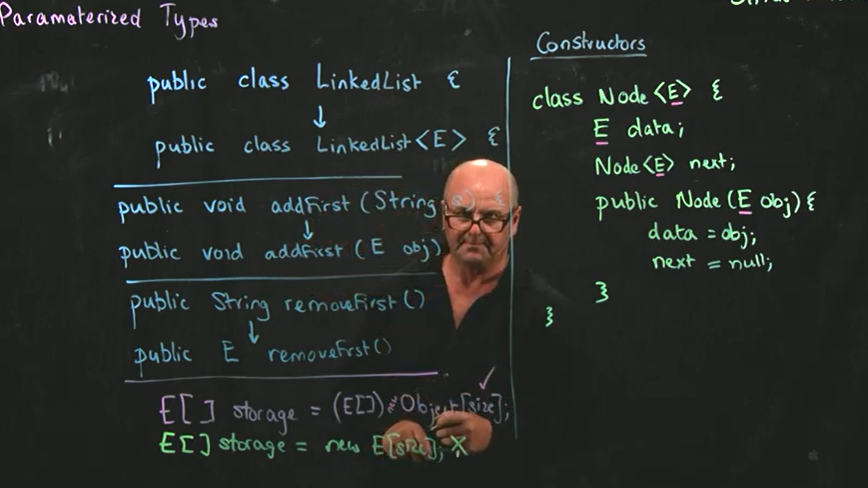 Paramaterized Types
public class LinkedList {
↓
public class LinkedList<E> {
public void addFirst (String s) {
↓
public void addFirst (E obj)
public String removeFirst ()
↓
public E removeFirst ()
E[] storage = (E[]) Object[size]; ✓
E[] storage = new E[size]; X
Constructors
class Node <E> {
E data;
Node<E> next;
public Node (E obj) {
data = obj;
next = null;
}
}